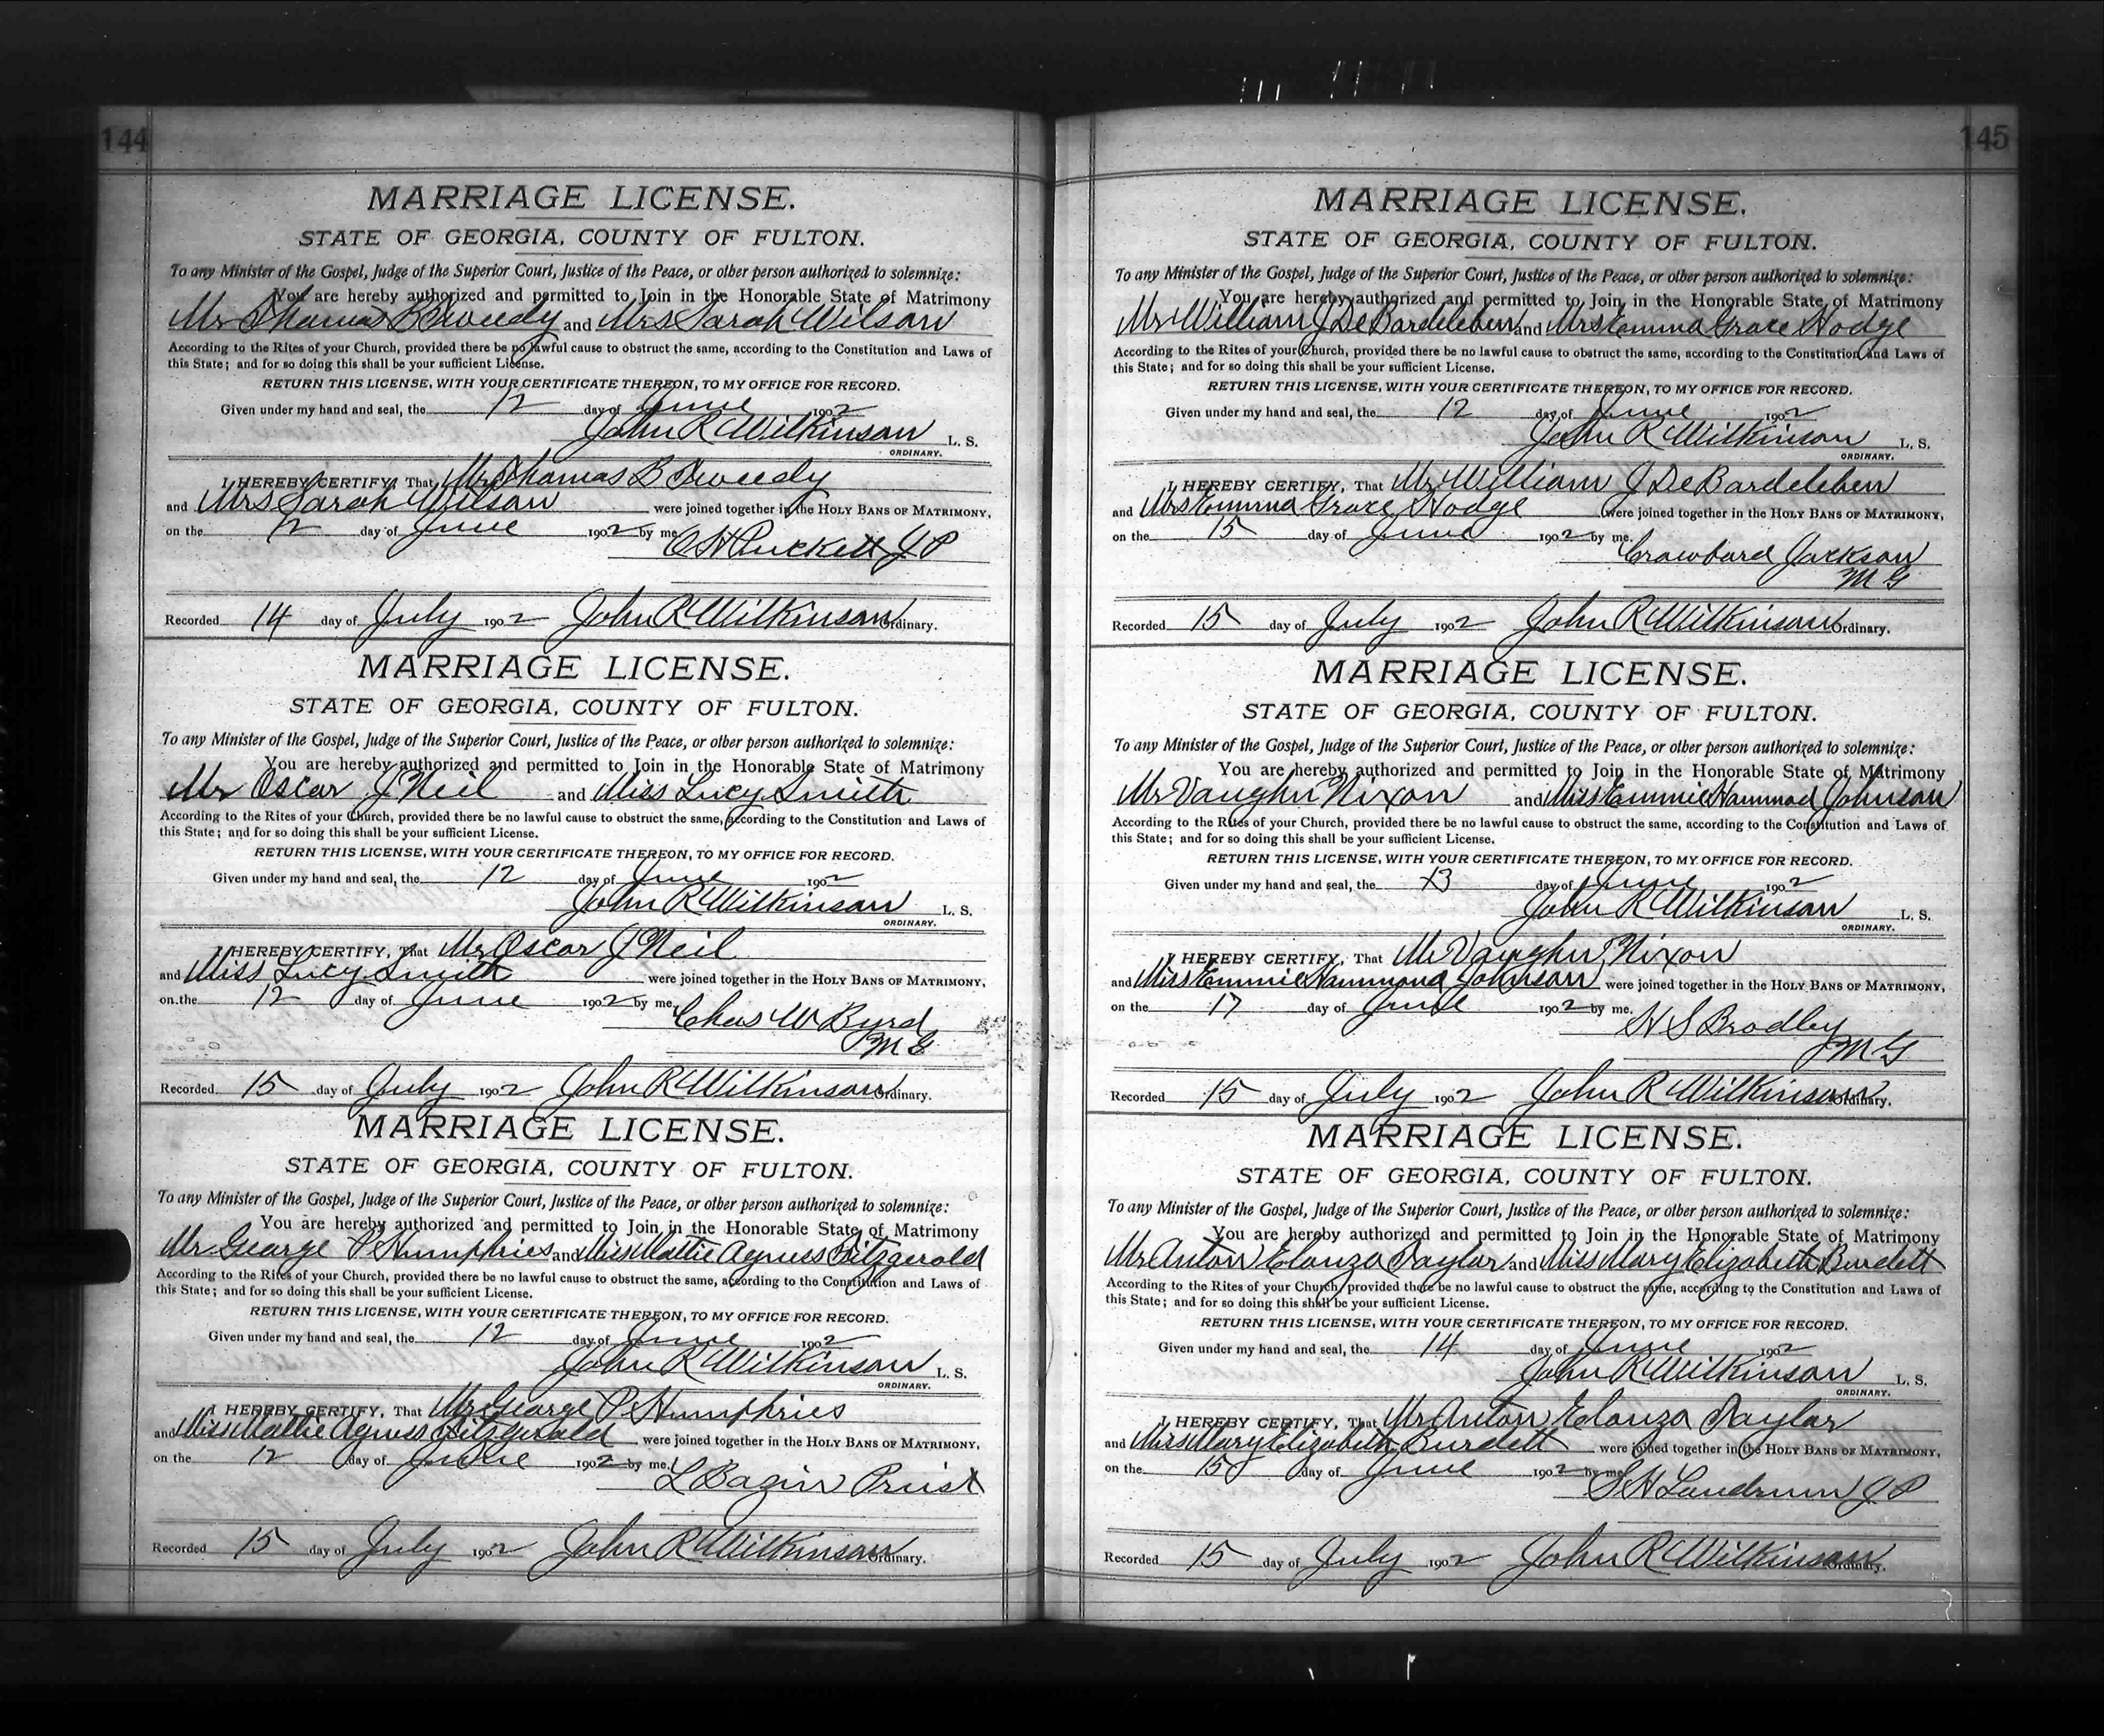 144
MARRIAGE LICENSE.
STATE OF GEORGIA, COUNTY OF FULTON.
To any Minister of the Gospel, Judge of the Superior Court, Justice of the Peace, or other person authorized to solemnize:
You are hereby authorized and permitted to Join in the Honorable State of Matrimony
Mr Thomas B Tweedy and Mrs Sarah Wilson
According to the Rites of your Church, provided there be no lawful cause to obstruct the same, according to the Constitution and Laws of
this State; and for so doing this shall be your sufficient License.
RETURN THIS LICENSE, WITH YOUR CERTIFICATE THEREON, TO MY OFFICE FOR RECORD.
Given under my hand and seal, the 12 day of June 1902
John R Wilkinson L. S.
ORDINARY.
I HEREBY CERTIFY, That Mr Thomas B Tweedy
and Mrs Sarah Wilson were joined together in the HOLY BANS OF MATRIMONY,
on the 12 day of June 1902 by me.
O H Puckett J P
Recorded 14 day of July 1902 John R Wilkinson Ordinary.
MARRIAGE LICENSE.
STATE OF GEORGIA, COUNTY OF FULTON.
To any Minister of the Gospel, Judge of the Superior Court, Justice of the Peace, or other person authorized to solemnize:
You are hereby authorized and permitted to Join in the Honorable State of Matrimony
Mr Oscar J Neil and Miss Lucy Smith
According to the Rites of your Church, provided there be no lawful cause to obstruct the same, according to the Constitution and Laws of
this State; and for so doing this shall be your sufficient License.
RETURN THIS LICENSE, WITH YOUR CERTIFICATE THEREON, TO MY OFFICE FOR RECORD.
Given under my hand and seal, the 12 day of June 1902
John R Wilkinson L. S.
ORDINARY.
I HEREBY CERTIFY, That Mr Oscar J Neil
and Miss Lucy Smith were joined together in the HOLY BANS OF MATRIMONY,
on the 12 day of June 1902 by me.
Chas W Byrd
M G
Recorded 15 day of July 1902 John R Wilkinson Ordinary.
MARRIAGE LICENSE.
STATE OF GEORGIA, COUNTY OF FULTON.
To any Minister of the Gospel, Judge of the Superior Court, Justice of the Peace, or other person authorized to solemnize:
You are hereby authorized and permitted to Join in the Honorable State of Matrimony
Mr George P Humphries and Miss Mattie Agness Fitzgerald
According to the Rites of your Church, provided there be no lawful cause to obstruct the same, according to the Constitution and Laws of
this State; and for so doing this shall be your sufficient License.
RETURN THIS LICENSE, WITH YOUR CERTIFICATE THEREON, TO MY OFFICE FOR RECORD.
Given under my hand and seal, the 12 day of June 1902
John R Wilkinson L. S.
ORDINARY.
I HEREBY CERTIFY, That Mr George P Humphries
and Miss Mattie Agness Fitzgerald were joined together in the HOLY BANS OF MATRIMONY,
on the 12 day of June 1902 by me.
L Bazin Priest
Recorded 15 day of July 1902 John R Wilkinson Ordinary.
145
MARRIAGE LICENSE.
STATE OF GEORGIA, COUNTY OF FULTON.
To any Minister of the Gospel, Judge of the Superior Court, Justice of the Peace, or other person authorized to solemnize:
You are hereby authorized and permitted to Join in the Honorable State of Matrimony
Mr William J DeBardeleben and Mrs Emma Grace Hodge
According to the Rites of your Church, provided there be no lawful cause to obstruct the same, according to the Constitution and Laws of
this State; and for so doing this shall be your sufficient License.
RETURN THIS LICENSE, WITH YOUR CERTIFICATE THEREON, TO MY OFFICE FOR RECORD.
Given under my hand and seal, the 12 day of June 1902
John R Wilkinson L. S.
ORDINARY.
I HEREBY CERTIFY, That Mr William J DeBardeleben
and Mrs Emma Grace Hodge were joined together in the HOLY BANS OF MATRIMONY,
on the 15 day of June 1902 by me.
Crawford Jackson
M G
Recorded 15 day of July 1902 John R Wilkinson Ordinary.
MARRIAGE LICENSE.
STATE OF GEORGIA, COUNTY OF FULTON.
To any Minister of the Gospel, Judge of the Superior Court, Justice of the Peace, or other person authorized to solemnize:
You are hereby authorized and permitted to Join in the Honorable State of Matrimony
Mr Vaughn Nixon and Miss Emmie Hammond Johnson
According to the Rites of your Church, provided there be no lawful cause to obstruct the same, according to the Constitution and Laws of
this State; and for so doing this shall be your sufficient License.
RETURN THIS LICENSE, WITH YOUR CERTIFICATE THEREON, TO MY OFFICE FOR RECORD.
Given under my hand and seal, the 13 day of June 1902
John R Wilkinson L. S.
ORDINARY.
I HEREBY CERTIFY, That Mr Vaughn Nixon
and Miss Emmie Hammond Johnson were joined together in the HOLY BANS OF MATRIMONY,
on the 17 day of June 1902 by me.
H S Bradley
M G
Recorded 15 day of July 1902 John R Wilkinson Ordinary.
MARRIAGE LICENSE.
STATE OF GEORGIA, COUNTY OF FULTON.
To any Minister of the Gospel, Judge of the Superior Court, Justice of the Peace, or other person authorized to solemnize:
You are hereby authorized and permitted to Join in the Honorable State of Matrimony
Mr Anton Elonza Taylor and Miss Mary Elizabeth Burdett
According to the Rites of your Church, provided there be no lawful cause to obstruct the same, according to the Constitution and Laws of
this State; and for so doing this shall be your sufficient License.
RETURN THIS LICENSE, WITH YOUR CERTIFICATE THEREON, TO MY OFFICE FOR RECORD.
Given under my hand and seal, the 14 day of June 1902
John R Wilkinson L. S.
ORDINARY.
I HEREBY CERTIFY, That Mr Anton Elonza Taylor
and Miss Mary Elizabeth Burdett were joined together in the HOLY BANS OF MATRIMONY,
on the 15 day of June 1902 by me
S H Landrum J P
Recorded 15 day of July 1902 John R Wilkinson Ordinary.